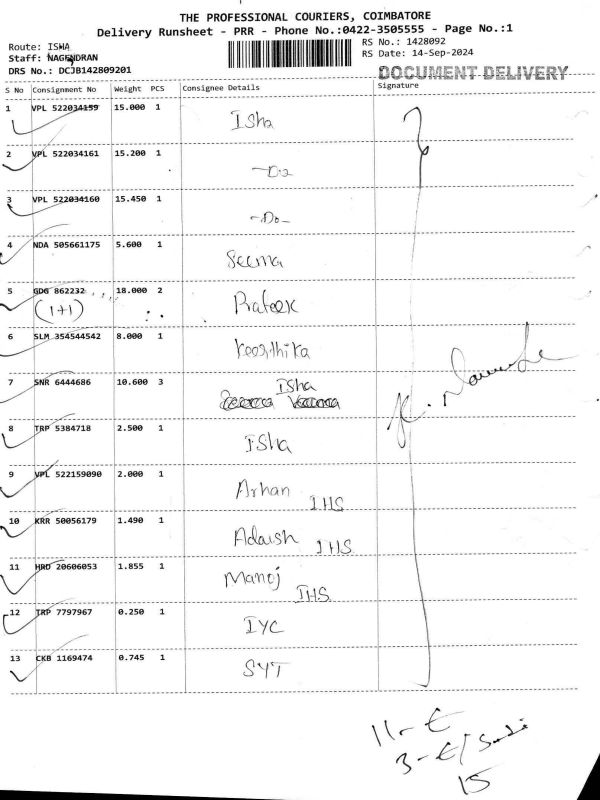 THE PROFESSIONAL COURIERS, COIMBATORE
Delivery Runsheet - PRR - Phone No.:0422-3505555 - Page No.:1
Route: ISHA
Staff: NAGENDRAN
DRS No.: DCJB142809201
RS No.: 1428092
RS Date: 14-Sep-2024
DOCUMENT DELIVERY
S No Consignment No Weight PCS Consignee Details Signature
1 VPL 522034159 15.000 1 Isha
2 VPL 522034161 15.200 1 -Do-
3 VPL 522034160 15.450 1 -Do-
4 NDA 505661175 5.600 1 Seema
5 GDG 862232 18.000 2 Prateek
(1+1)
6 SLM 354544542 8.000 1 Keerthika
7 SNR 6444686 10.600 3 Isha
8 TRP 5384718 2.500 1 Isha
9 VPL 522159090 2.000 1 Arhan IHS
10 KRR 50056179 1.490 1 Adarsh IHS
11 HRD 20606053 1.855 1 Manoj IHS
12 TRP 7797967 0.250 1 IYC
13 CKB 1169474 0.745 1 SYT
11-E
3-E/
15